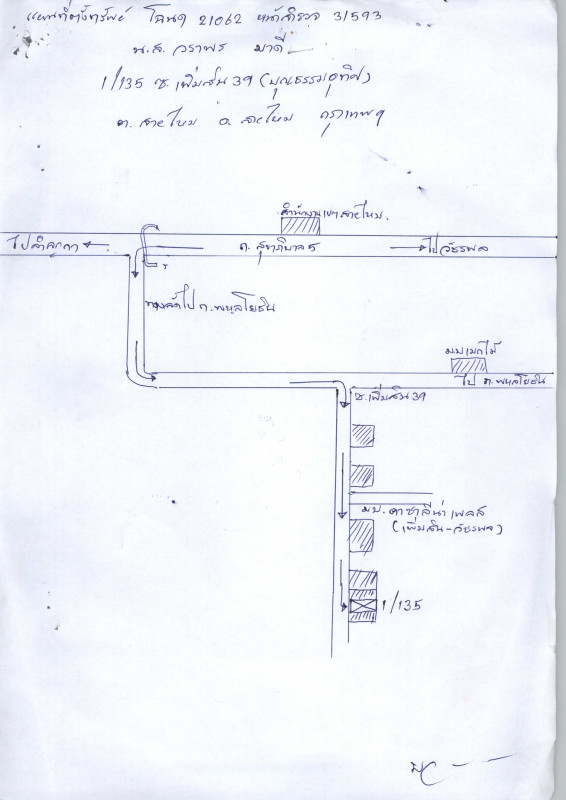 แผนที่ตั้งทรัพย์ โฉนด 21062 หน้าสำรวจ 31593
น.ส. วราพร มาดี
1/135 ซ. เพิ่มสิน 39 (บุญธรรมอุทิศ)
ต. สายไหม อ. สายไหม กรุงเทพฯ
สำนักงานเขตสายไหม.
ไปลำลูกกา
ถ. สุขาภิบาล 5
ไปวัชรพล
ทางลัดไป ถ. พหลโยธิน
ไป ถ. พหลโยธิน
ซ. เพิ่มสิน 39
มบ. คาซาลีน่า เพลส
(เพิ่มสิน-วัชรพล)
1/135